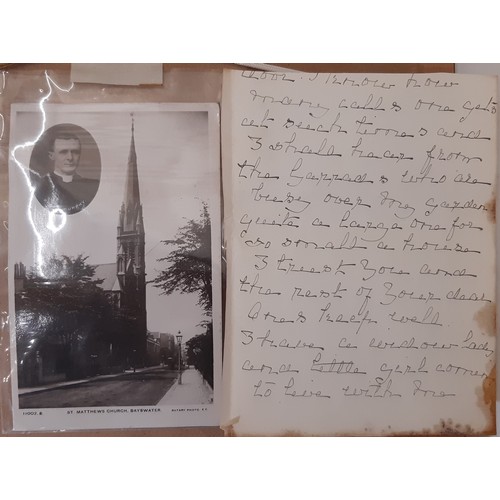 door. I know how
many calls one gets
at such times and
I shall hear from
the Garrads who are
busy over my garden
quite a large one for
so small a house
I trust you and
the rest of your dear
ones keep well.
I have a widow lady
and little girl comes
to live with me
ST. MATTHEWS CHURCH, BAYSWATER.